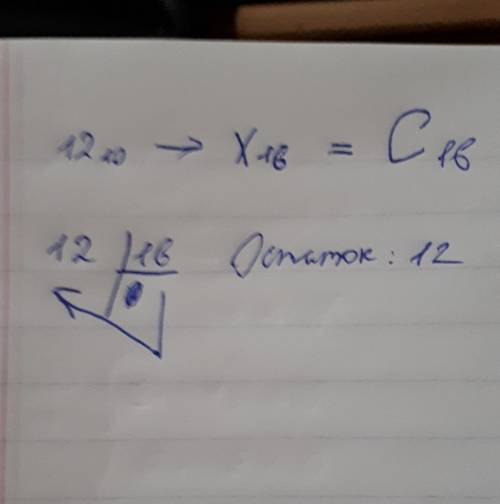 12₁₀ → X₁₆ = C₁₆
12 16 Остаток: 12
0